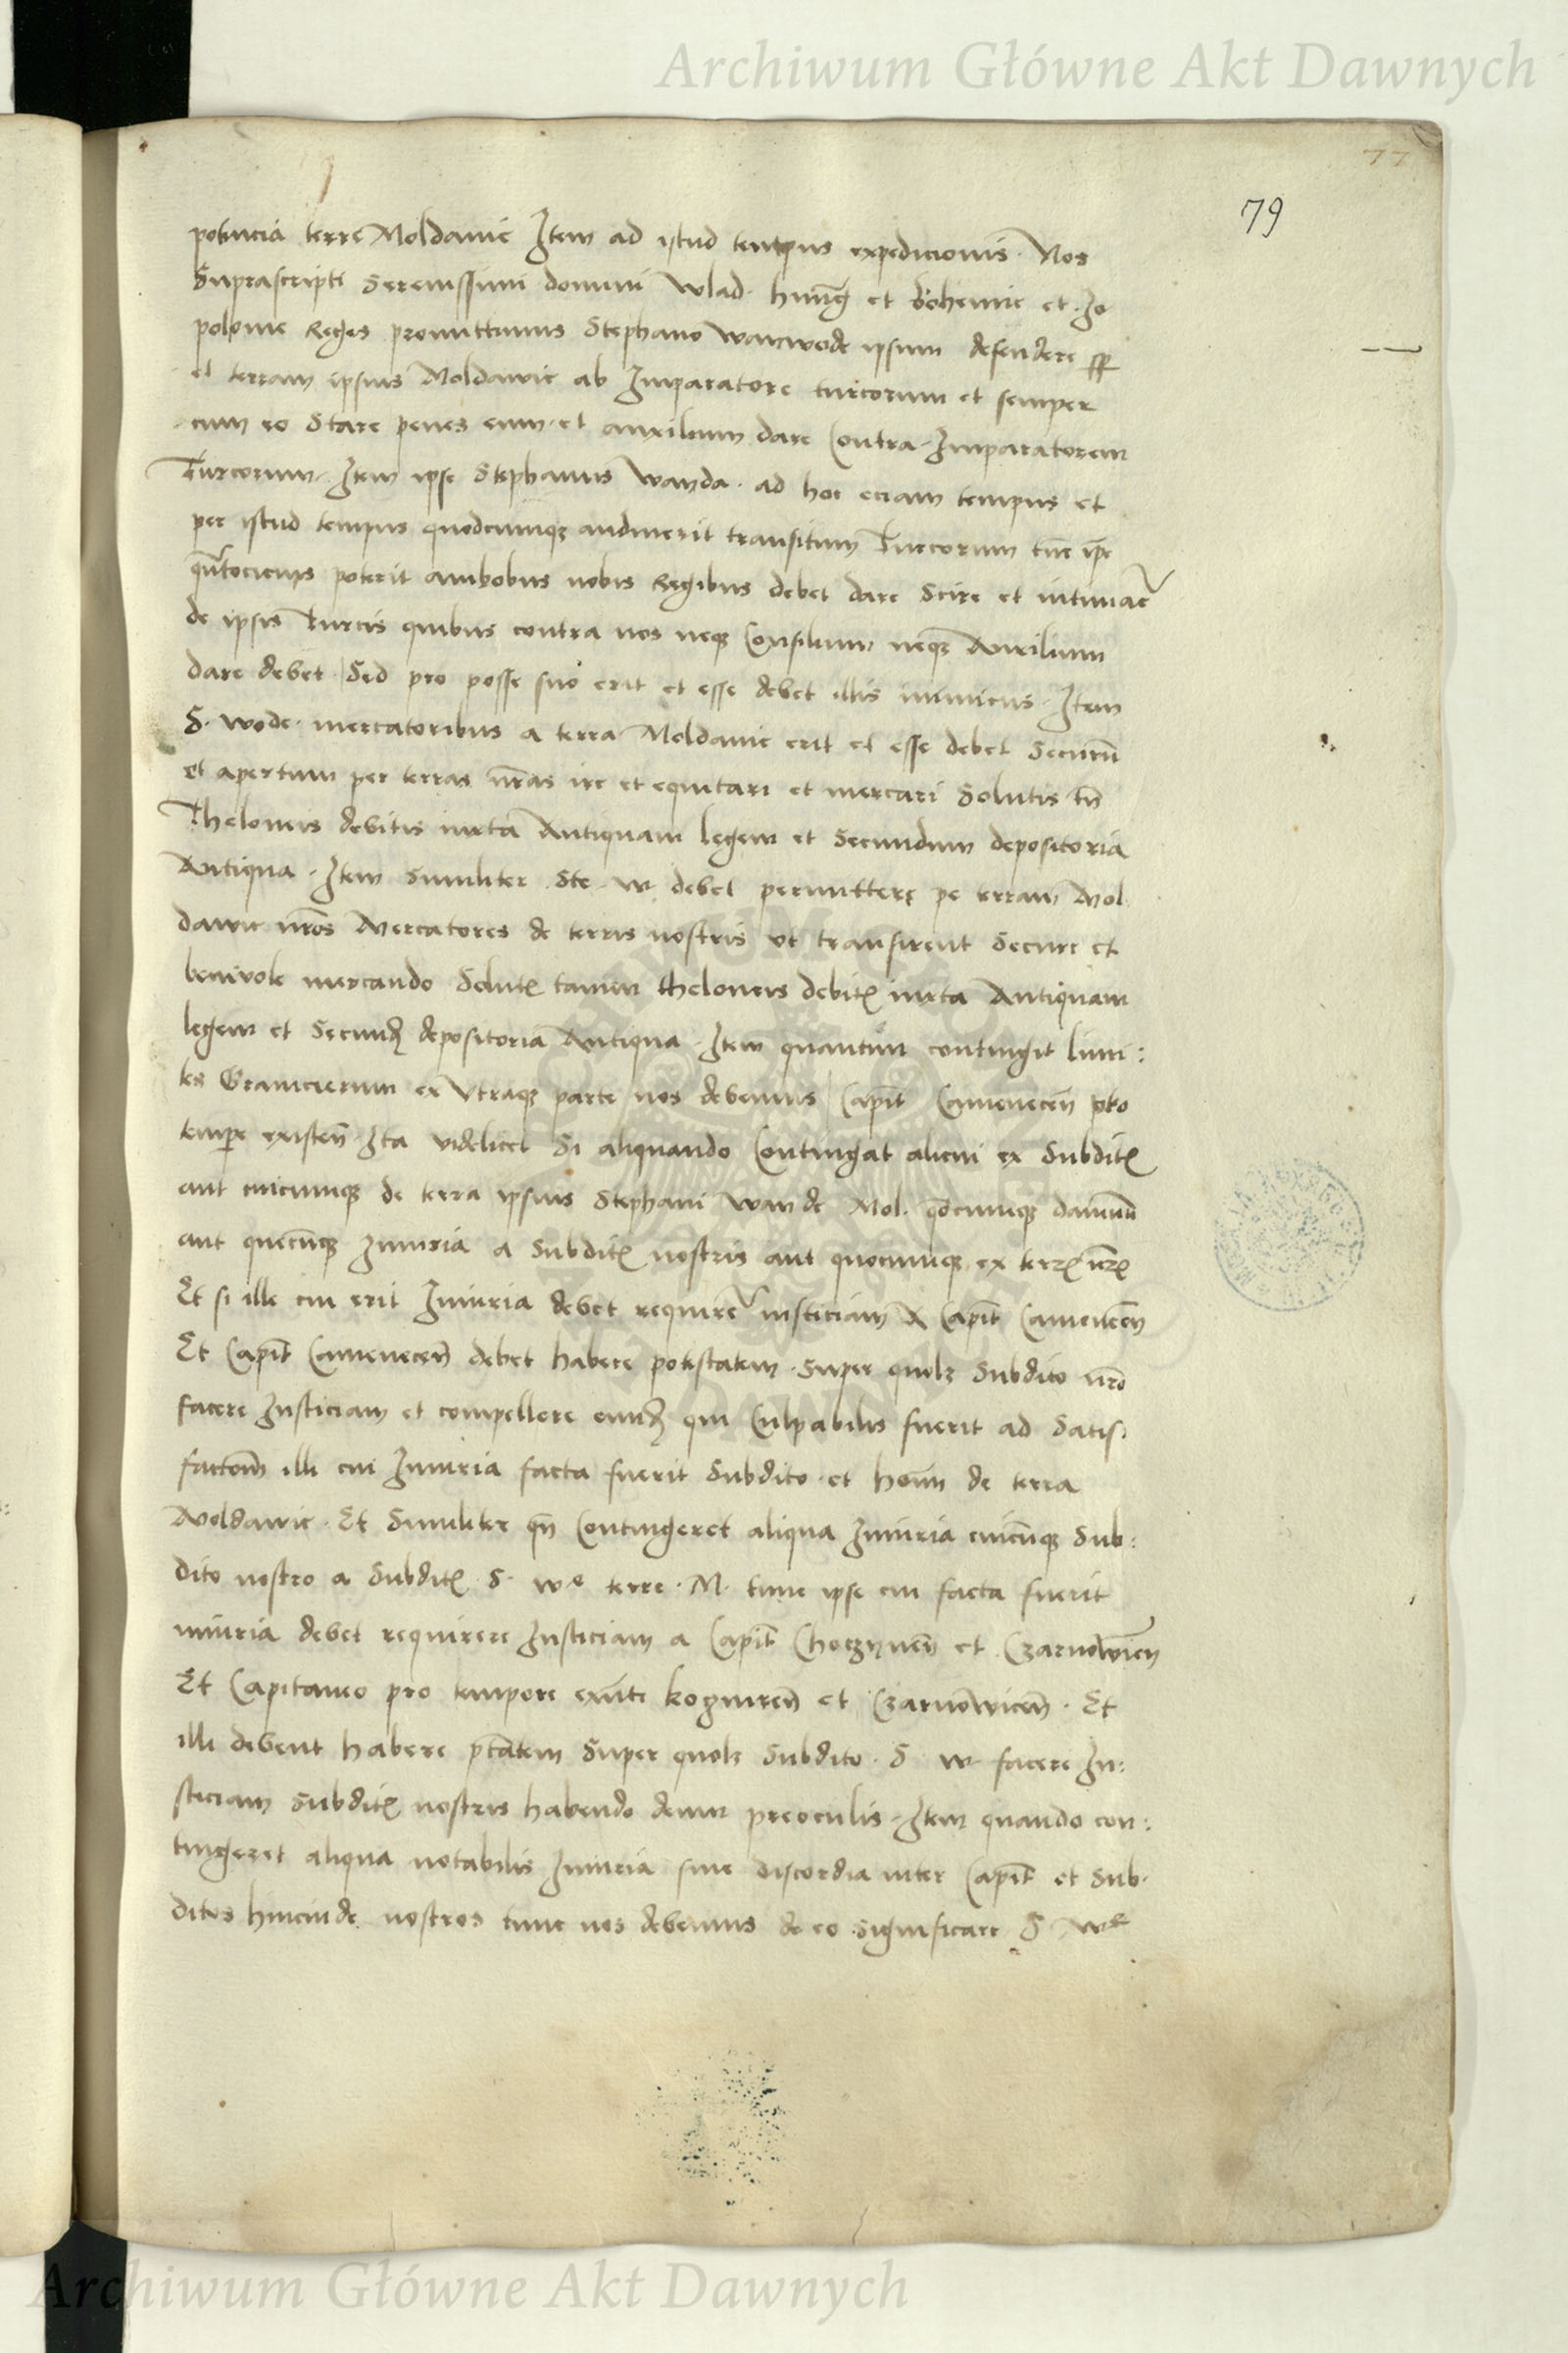 Archiwum Główne Akt Dawnych
77
79
potencia terre Moldavie Item ad istud tempus expedicionis. Nos
Suprascripti Serenissimi domini Wlad. hung et bohemie et. Jo
polonie Reges promittimus Stephano Waiwode ipsum defendere
et terram ipsius Moldavie ab Imparatore turcorum et semper
cum eo Stare penes eum. et auxilium dare Contra Imparatorem
Turcorum. Item ipse Stephanus Wayda. ad hoc eciam tempus et
per istud tempus quodcumqz audiverit transitum Turcorum tnc ipe
qntocicius poterit ambobus nobis Regibus debet dare Scire et intimare
de ipsis Turcis quibus contra nos neqz Consilium neqz Auxilium
dare debet Sed pro posse suo erit et esse debet illis inimicus. Item
S. wode. mercatoribus a terra Moldavie erit et esse debet Securu
et apertum per terras nras ire et equitari et mercari Solutis tn
Theloneis debitis iuxta Antiquam legem et Secundum depositoria
Antiqua. Item Similiter Ste. w. debet permittere pe terram Mol
davie nros Mercatores de terris nostris ut transirent Secure et
benivole mercando Solut tamen theloneis debit iuxta Antiquam
legem et Secund depositoria Antiqua. Item quantum contingit limi:
tes Granicierum ex Utraqz parte nos debemus Capit Camenecen pro
tempe existen. Ita videlicet Si aliquando Contingat alicui ex Subdit
aut cuicumqz de terra ipsius Stephani Waude Mol. qdcumqz damnu
aut quecuqz Iniuria a Subdit nostris aut quocumqz ex terr nr
Et si ille cui erit Iniuria debet requirere iusticiam a Capit Camenecen
Et Capit Camenecen debet habere potestatem. Super quolz Subdito nro
facere Iusticiam et compellere eund qui Culpabilis fuerit ad Satis:
factom illi cui Iniuria facta fuerit Subdito. et homi de terra
Moldavie. Et Similiter qn Contingeret aliqua Iniuria cuicuqz Sub:
dito nostro a Subdit. S. we terre. M. tunc ipse cui facta fuerit
iniuria debet requirere Iusticiam a Capit Choczymen et Czarnowien
Et Capitaneo pro tempore exnti et Czarnowicen. Et
illi debent habere ptatem Super quolz Subdito. S. w. facere Iu:
sticiam Subdit nostris habendo deum preoculis. Item quando con:
tingeret aliqua notabilis Iniuria sive discordia inter Capit et Sub.
ditos hincinde nostros tunc nos debemus de eo Significare S We
Archiwum Główne Akt Dawnych